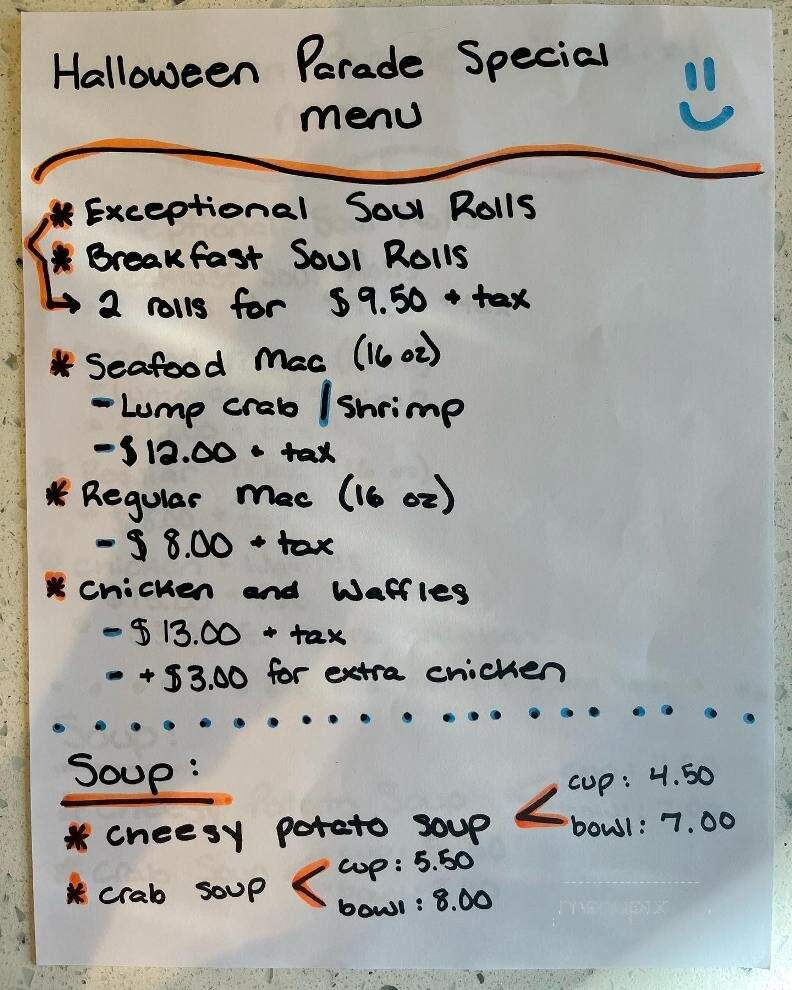 Halloween Parade Special
menu
* Exceptional Soul Rolls
* Breakfast Soul Rolls
→ 2 rolls for $9.50 + tax
* Seafood Mac (16 oz)
- Lump crab / Shrimp
- $12.00 + tax
* Regular Mac (16 oz)
- $8.00 + tax
* Chicken and Waffles
- $13.00 + tax
- + $3.00 for extra chicken
Soup:
* cheesy potato soup < cup: 4.50
bowl: 7.00
* crab soup < cup: 5.50
bowl: 8.00